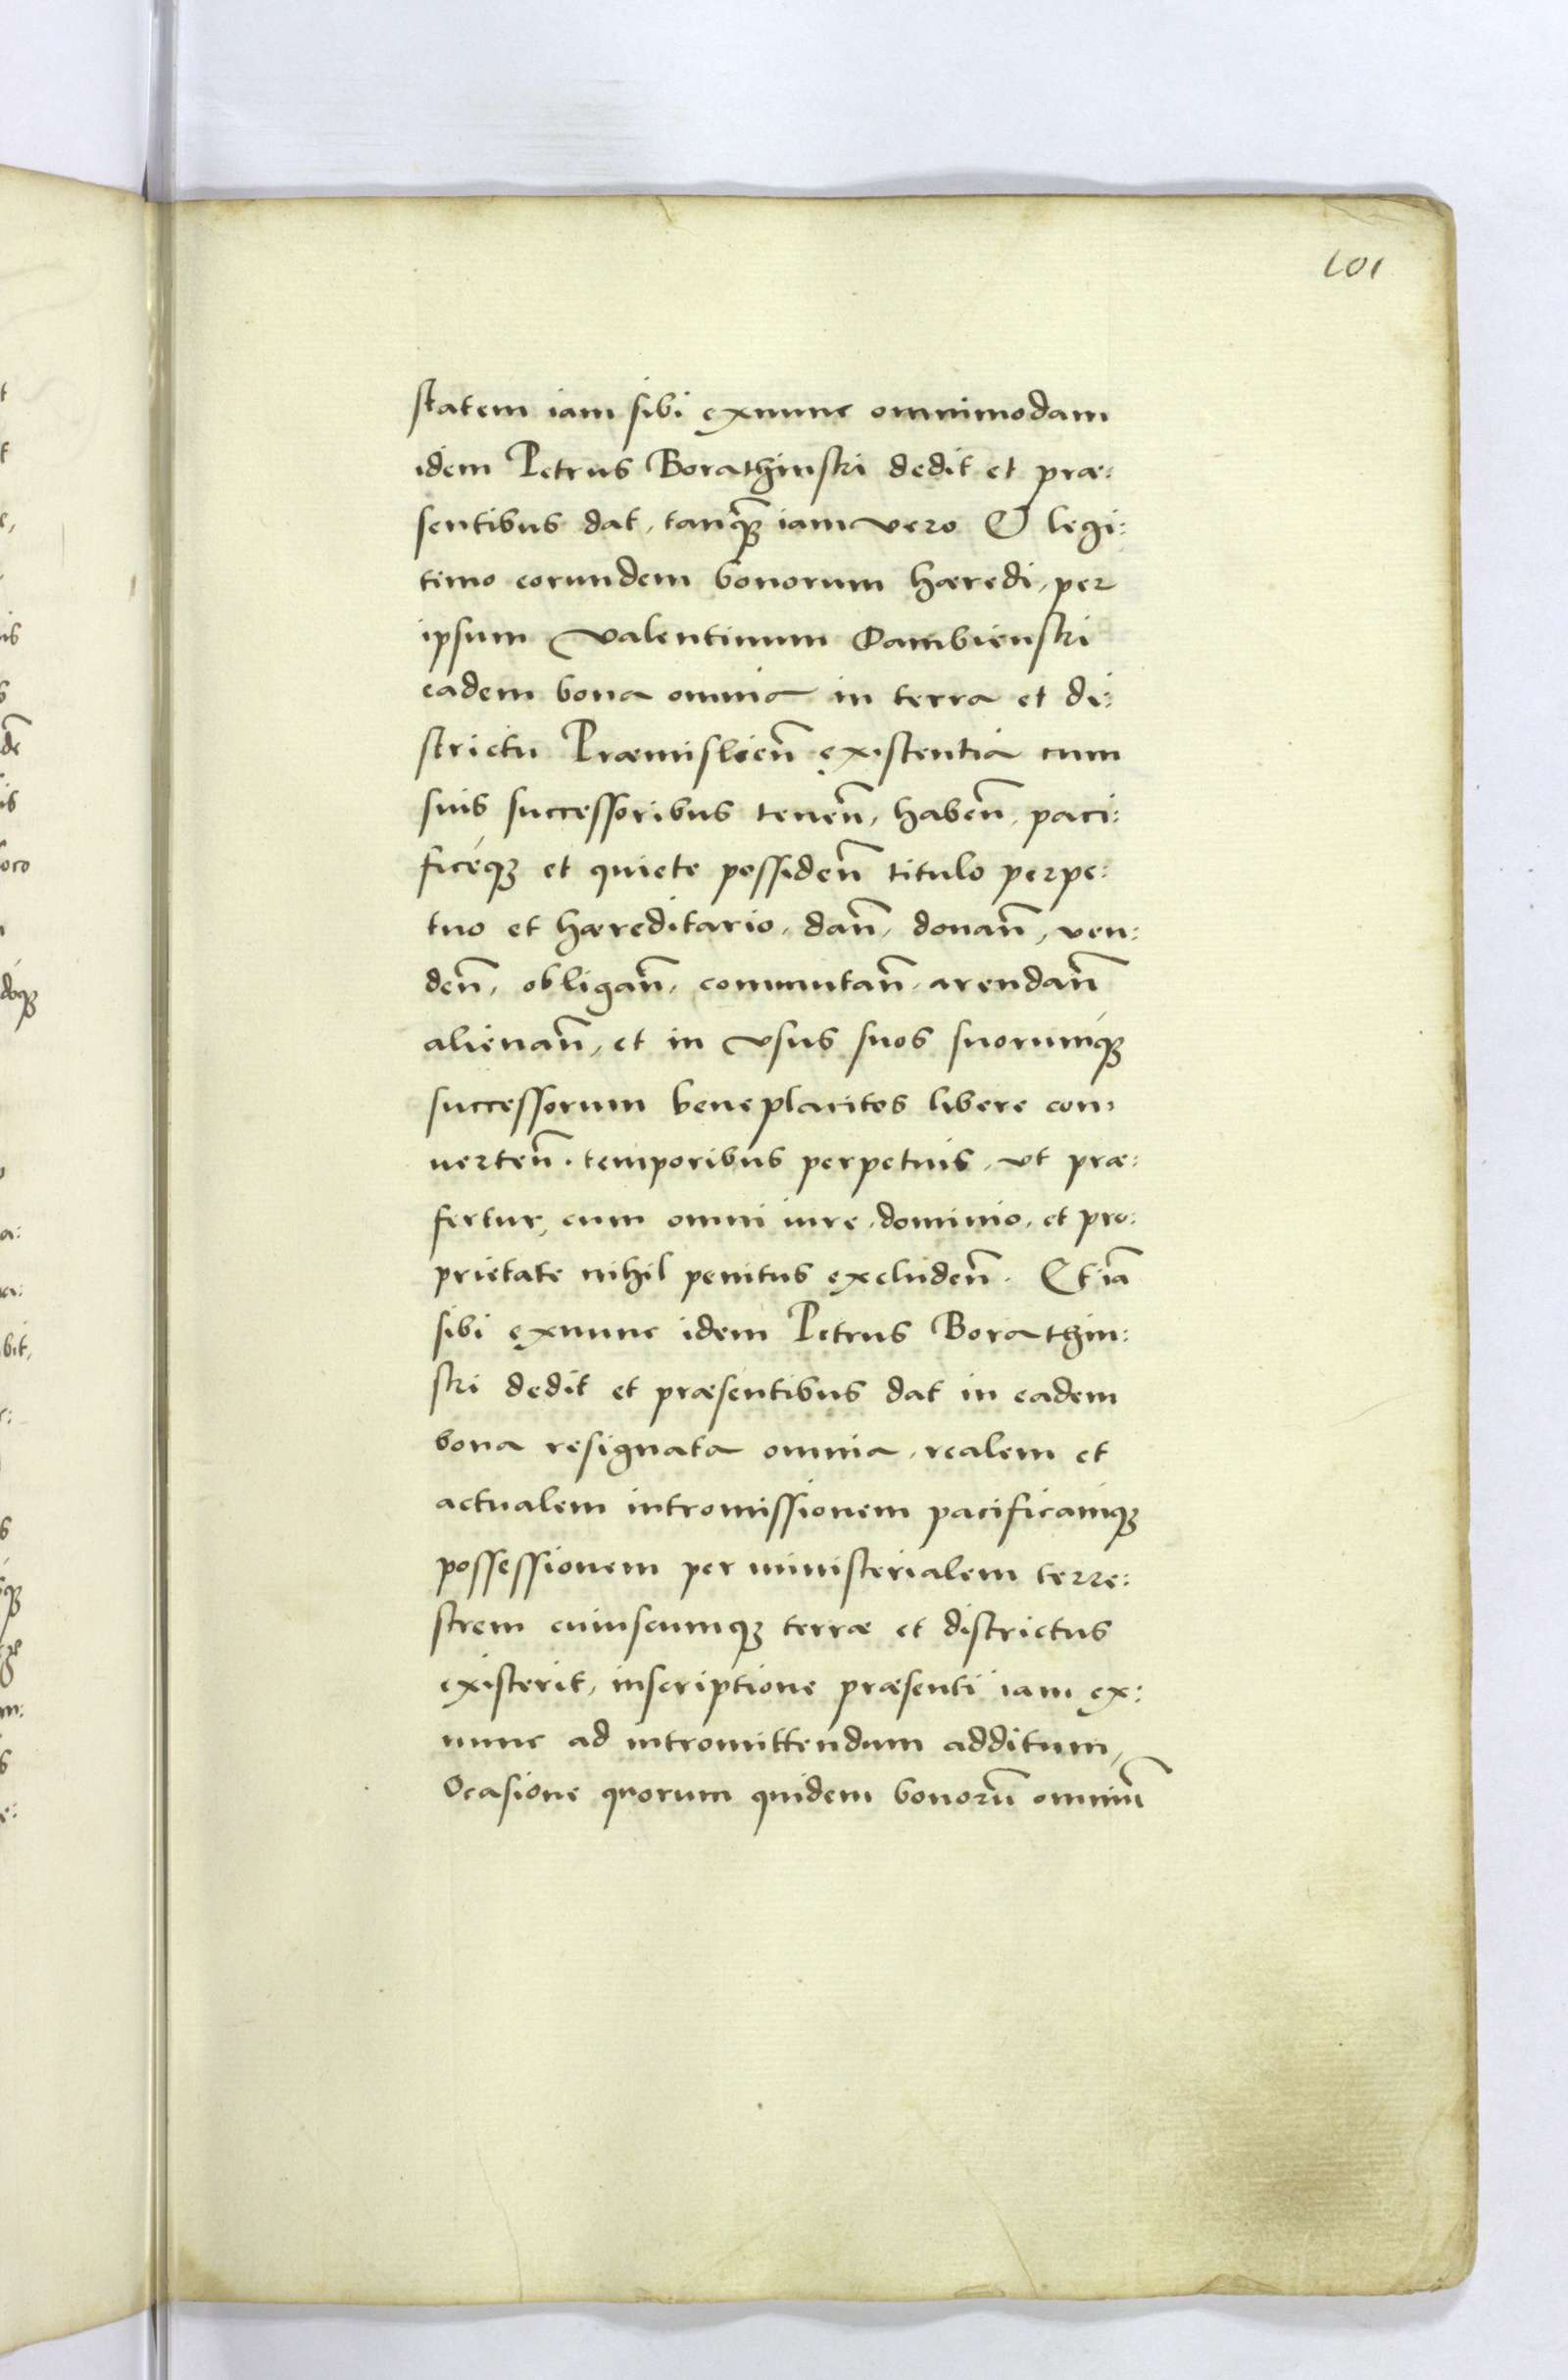 101
statem iam sibi exnunc omnimodam
idem Petrus Borathinski dedit et præ:
sentibus dat, tanq̃ꝫ iam vero & legi:
timo eorundem bonorum hæredi, per
ipsum Valentinum Dambienski
eadem bona omnia in terra et di:
strictu Præmislien̄ existentia cum
suis successoribus tenen̄, haben̄, paci:
ficéqꝫ et quiete possiden̄ titulo perpe:
tuo et hæreditario, dan̄, donan̄, ven:
den̄, obligan̄, commutan̄, arendan̄
alienan̄, et in vsus suos suorumqꝫ
successorum beneplacitos libere con:
uerten̄. temporibus perpetuis, vt præ:
fertur, cum omni iure, dominio, et pro:
prietate nihil penitus excluden̄. Et iã
sibi exnunc idem Petrus Borathin:
ski dedit et præsentibus dat in eadem
bona resignata omnia, realem et
actualem intromissionem pacificamqꝫ
possessionem per ministerialem terre:
strem cuiuscumqꝫ terræ et districtus
existerit, inscriptione præsenti iam ex:
nunc ad intromittendum additum,
Ocasione quorum quidem bonorū omniū